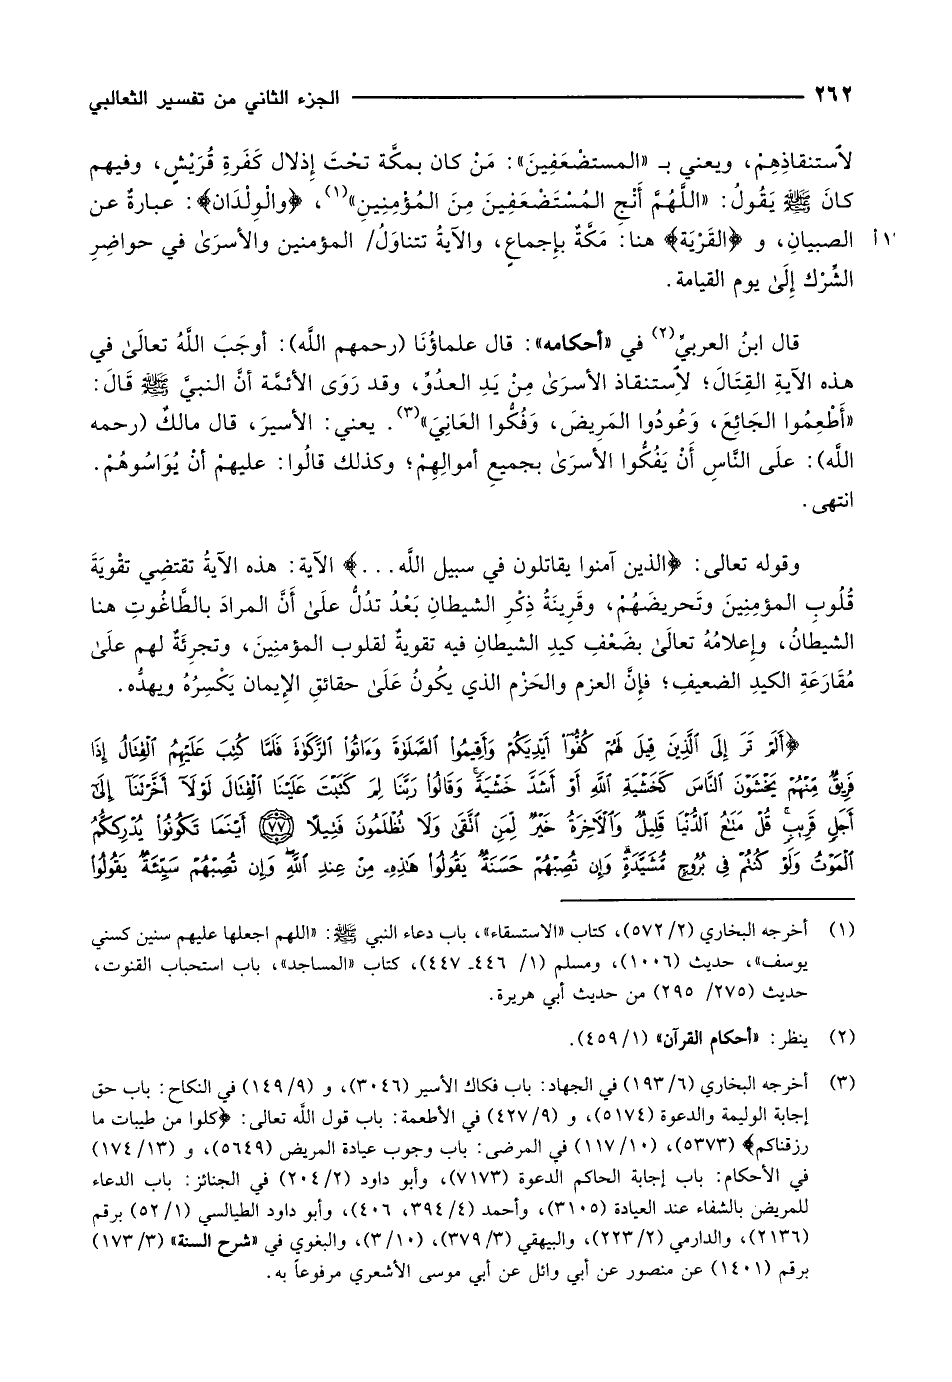 ٢٦٢ الجزء الثاني من تفسير الثعالبي
لاستنقاذِهِمْ، ويعني بـ «المستضْعَفِينَ»: مَنْ كان بمكَّة تحْتَ إِذلال كَفَرةِ قُرَيْشٍ، وفيهم
كانَ ﷺ يَقُولُ: «اللَّهُمَّ أَنْجِ المُسْتَضْعَفِينَ مِنَ المُؤْمِنِينِ»(١)، ﴿والْوِلْدَان﴾: عبارةٌ عن
١أ الصبيانِ، و ﴿القَرْيَة﴾ هنا: مَكَّةُ بإجماعٍ، والآيةُ تتناوَلُ/ المؤمنين والأسرَىٰ في حواضِرِ
الشِّرْك إِلَىٰ يوم القيامة.
قال ابنُ العربيِّ(٢) في «أحكامه»: قال علماؤُنَا (رحمهم اللَّه): أوجَبَ اللَّهُ تعالَىٰ في
هذه الآيةِ القِتَالَ؛ لاِستنقاذ الأسرَىٰ مِنْ يَدِ العدُوِّ، وقد رَوَى الأئمَّة أنَّ النبيَّ ﷺ قَالَ:
«أَطْعِمُوا الجَائِعَ، وَعُودُوا المَرِيضَ، وَفُكُّوا العَانِيَ»(٣). يعني: الأسيرَ، قال مالكٌ (رحمه
اللَّه): علَى النَّاسِ أَنْ يَفُكُّوا الأسرَىٰ بجميعِ أموالِهِمْ؛ وكذلك قالُوا: عليهمْ أنْ يُوَاسُوهُمْ.
انتهى.
وقوله تعالى: ﴿الذين آمنوا يقاتلون في سبيل اللَّه...﴾ الآية: هذه الآيةُ تقتضِي تقْويَةَ
قُلُوبِ المؤمِنِينَ وتَحريضَهُمْ، وقَرِينَةُ ذِكْرِ الشيطانِ بَعْدُ تدُلُّ علَىٰ أَنَّ المرادَ بالطَّاغُوتِ هنا
الشيطانُ، وإعلامُهُ تعالَىٰ بضَعْفِ كيدِ الشيطانِ فيه تقويةٌ لقلوب المؤمنِينَ، وتجرِئَةٌ لهم علَىٰ
مُقَارَعَةِ الكيدِ الضعيفِ؛ فإنَّ العزم والحَزْم الذي يكُونُ عَلَىٰ حقائقِ الإيمان يَكْسِرُهُ ويهدُّه.
﴿أَلَمْ تَرَ إِلَى ٱلَّذِينَ قِيلَ لَهُمْ كُفُّوٓا۟ أَيْدِيَكُمْ وَأَقِيمُوا۟ ٱلصَّلَوٰةَ وَءَاتُوا۟ ٱلزَّكَوٰةَ فَلَمَّا كُتِبَ عَلَيْهِمُ ٱلْقِتَالُ إِذَا
فَرِيقٌ مِّنْهُمْ يَخْشَوْنَ ٱلنَّاسَ كَخَشْيَةِ ٱللَّهِ أَوْ أَشَدَّ خَشْيَةً وَقَالُوا۟ رَبَّنَا لِمَ كَتَبْتَ عَلَيْنَا ٱلْقِتَالَ لَوْلَآ أَخَّرْتَنَآ إِلَىٰٓ
أَجَلٍ قَرِيبٍ قُلْ مَتَٰعُ ٱلدُّنْيَا قَلِيلٌ وَٱلْءَاخِرَةُ خَيْرٌ لِّمَنِ ٱتَّقَىٰ وَلَا تُظْلَمُونَ فَتِيلًا (٧٧) أَيْنَمَا تَكُونُوا۟ يُدْرِككُّمُ
ٱلْمَوْتُ وَلَوْ كُنتُمْ فِى بُرُوجٍ مُّشَيَّدَةٍ وَإِن تُصِبْهُمْ حَسَنَةٌ يَقُولُوا۟ هَٰذِهِۦ مِنْ عِندِ ٱللَّهِ وَإِن تُصِبْهُمْ سَيِّئَةٌ يَقُولُوا۟
(١) أخرجه البخاري (٥٧٢/٢)، كتاب «الاستسقاء»، باب دعاء النبي ﷺ: «اللهم اجعلها عليهم سنين كسني
يوسف»، حديث (١٠٠٦)، ومسلم (١/ ٤٤٦ـ ٤٤٧)، كتاب «المساجد»، باب استحباب القنوت،
حديث (٢٧٥/ ٢٩٥) من حديث أبي هريرة.
(٢) ينظر: «أحكام القرآن» (٤٥٩/١).
(٣) أخرجه البخاري (١٩٣/٦) في الجهاد: باب فكاك الأسير (٣٠٤٦)، و (١٤٩/٩) في النكاح: باب حق
إجابة الوليمة والدعوة (٥١٧٤)، و (٤٢٧/٩) في الأطعمة: باب قول اللَّه تعالى: ﴿كلوا من طيبات ما
رزقناكم﴾ (٥٣٧٣)، (١١٧/١٠) في المرضى: باب وجوب عيادة المريض (٥٦٤٩)، و (١٧٤/١٣)
في الأحكام: باب إجابة الحاكم الدعوة (٧١٧٣)، وأبو داود (٢٠٤/٢) في الجنائز: باب الدعاء
للمريض بالشفاء عند العيادة (٣١٠٥)، وأحمد (٣٩٤/٤، ٤٠٦)، وأبو داود الطيالسي (٥٢/١) برقم
(٢١٣٦)، والدارمي (٢٢٣/٢)، والبيهقي (٣٧٩/٣)، (٣/١٠)، والبغوي في «شرح السنة» (١٧٣/٣)
برقم (١٤٠١) عن منصور عن أبي وائل عن أبي موسى الأشعري مرفوعاً به.